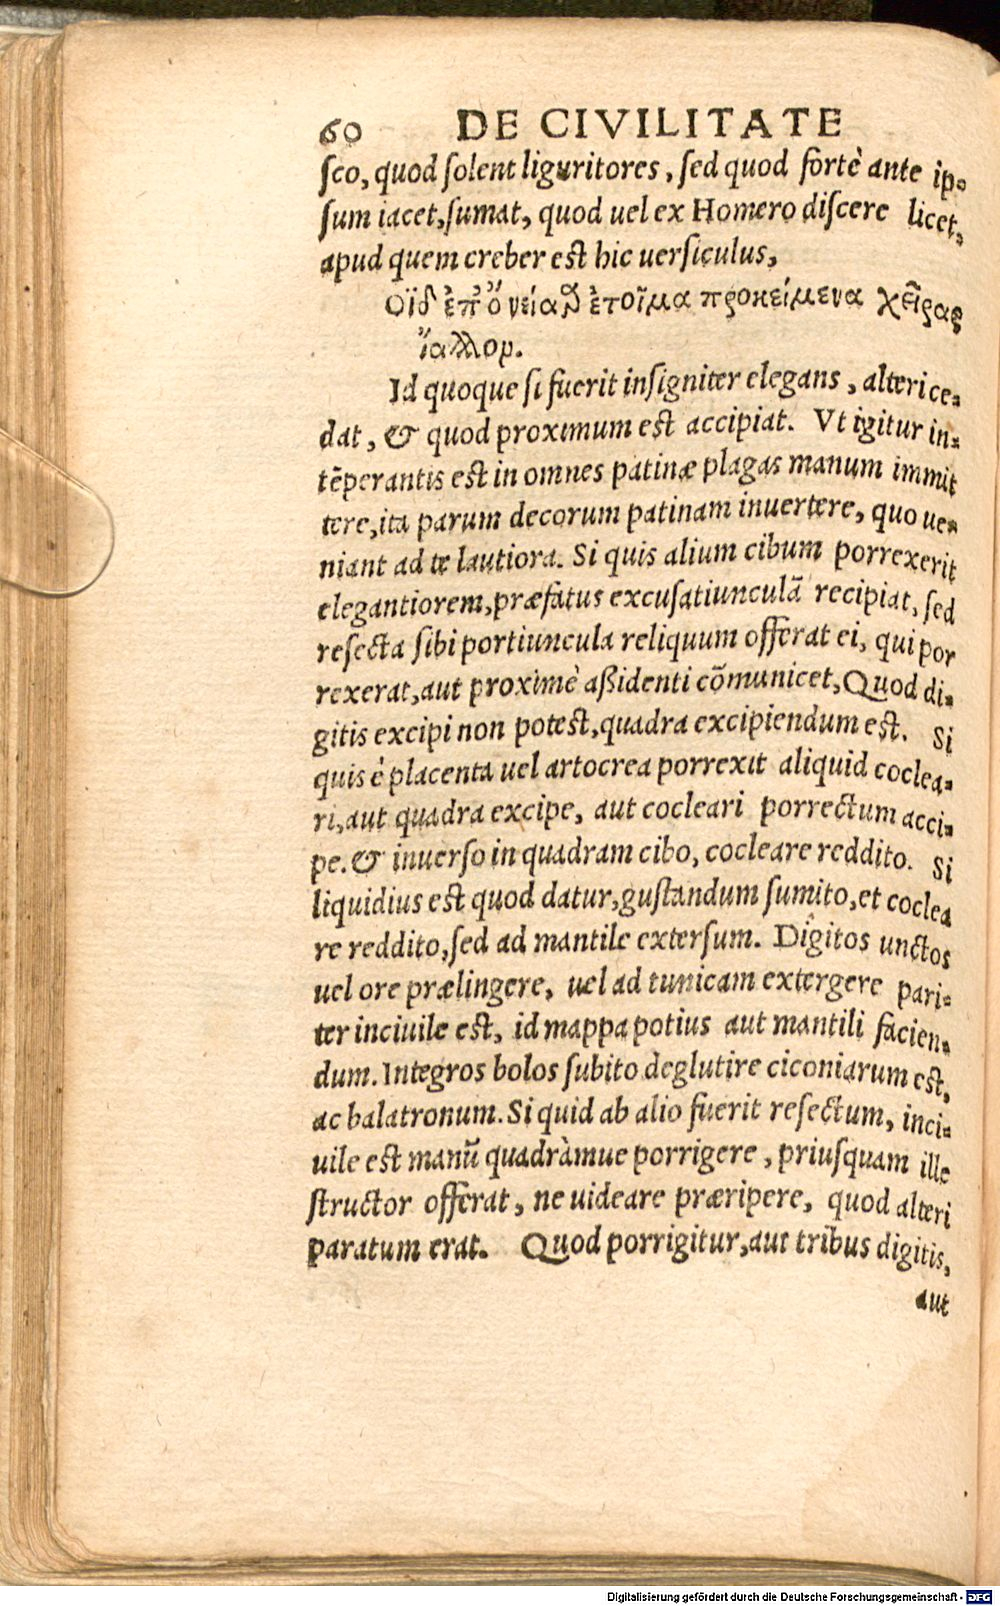 60 DE CIVILITATE
ſco, quod ſolent liguritores, ſed quod fortè ante ip-
ſum iacet, ſumat, quod uel ex Homero diſcere licet,
apud quem creber est hic uerſiculus,
Οἵδ' ἐπ' ὀνείαθ' ἑτοῖμα προκείμενα χεῖρας
ἴαλλον.
Id quoque ſi fuerit inſigniter elegans, alteri ce-
dat, & quod proximum est accipiat. Vt igitur in-
tẽperantis est in omnes patinæ plagas manum immit
tere, ita parum decorum patinam inuertere, quo ue-
niant ad te lautiora. Si quis alium cibum porrexerit
elegantiorem, præfatus excuſatiunculã recipiat, ſed
reſecta ſibi portiuncula reliquum offerat ei, qui por
rexerat, aut proximè aßidenti cõmunicet, Quod di-
gitis excipi non potest, quadra excipiendum est. Si
quis è placenta uel artocrea porrexit aliquid coclea-
ri, aut quadra excipe, aut cocleari porrectum acci-
pe. & inuerſo in quadram cibo, cocleare reddito. Si
liquidius est quod datur, guſtandum ſumito, et coclea
re reddito, ſed ad mantile exterſum. Digitos unctos
uel ore prælingere, uel ad tunicam extergere pari-
ter inciuile est, id mappa potius aut mantili facien-
dum. Integros bolos ſubito deglutire ciconiarum est,
ac balatronum. Si quid ab alio fuerit reſectum, inci-
uile est manũ quadràmue porrigere, priuſquam ille
ſtructor offerat, ne uideare præripere, quod alteri
paratum erat. Quod porrigitur, aut tribus digitis,
aut
Digitalisierung gefördert durch die Deutsche Forschungsgemeinschaft - DFG